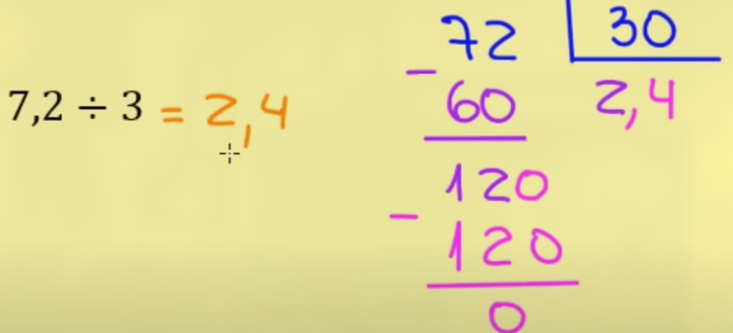 7,2 ÷ 3 = 2,4
72 30
- 60 2,4
120
- 120
0